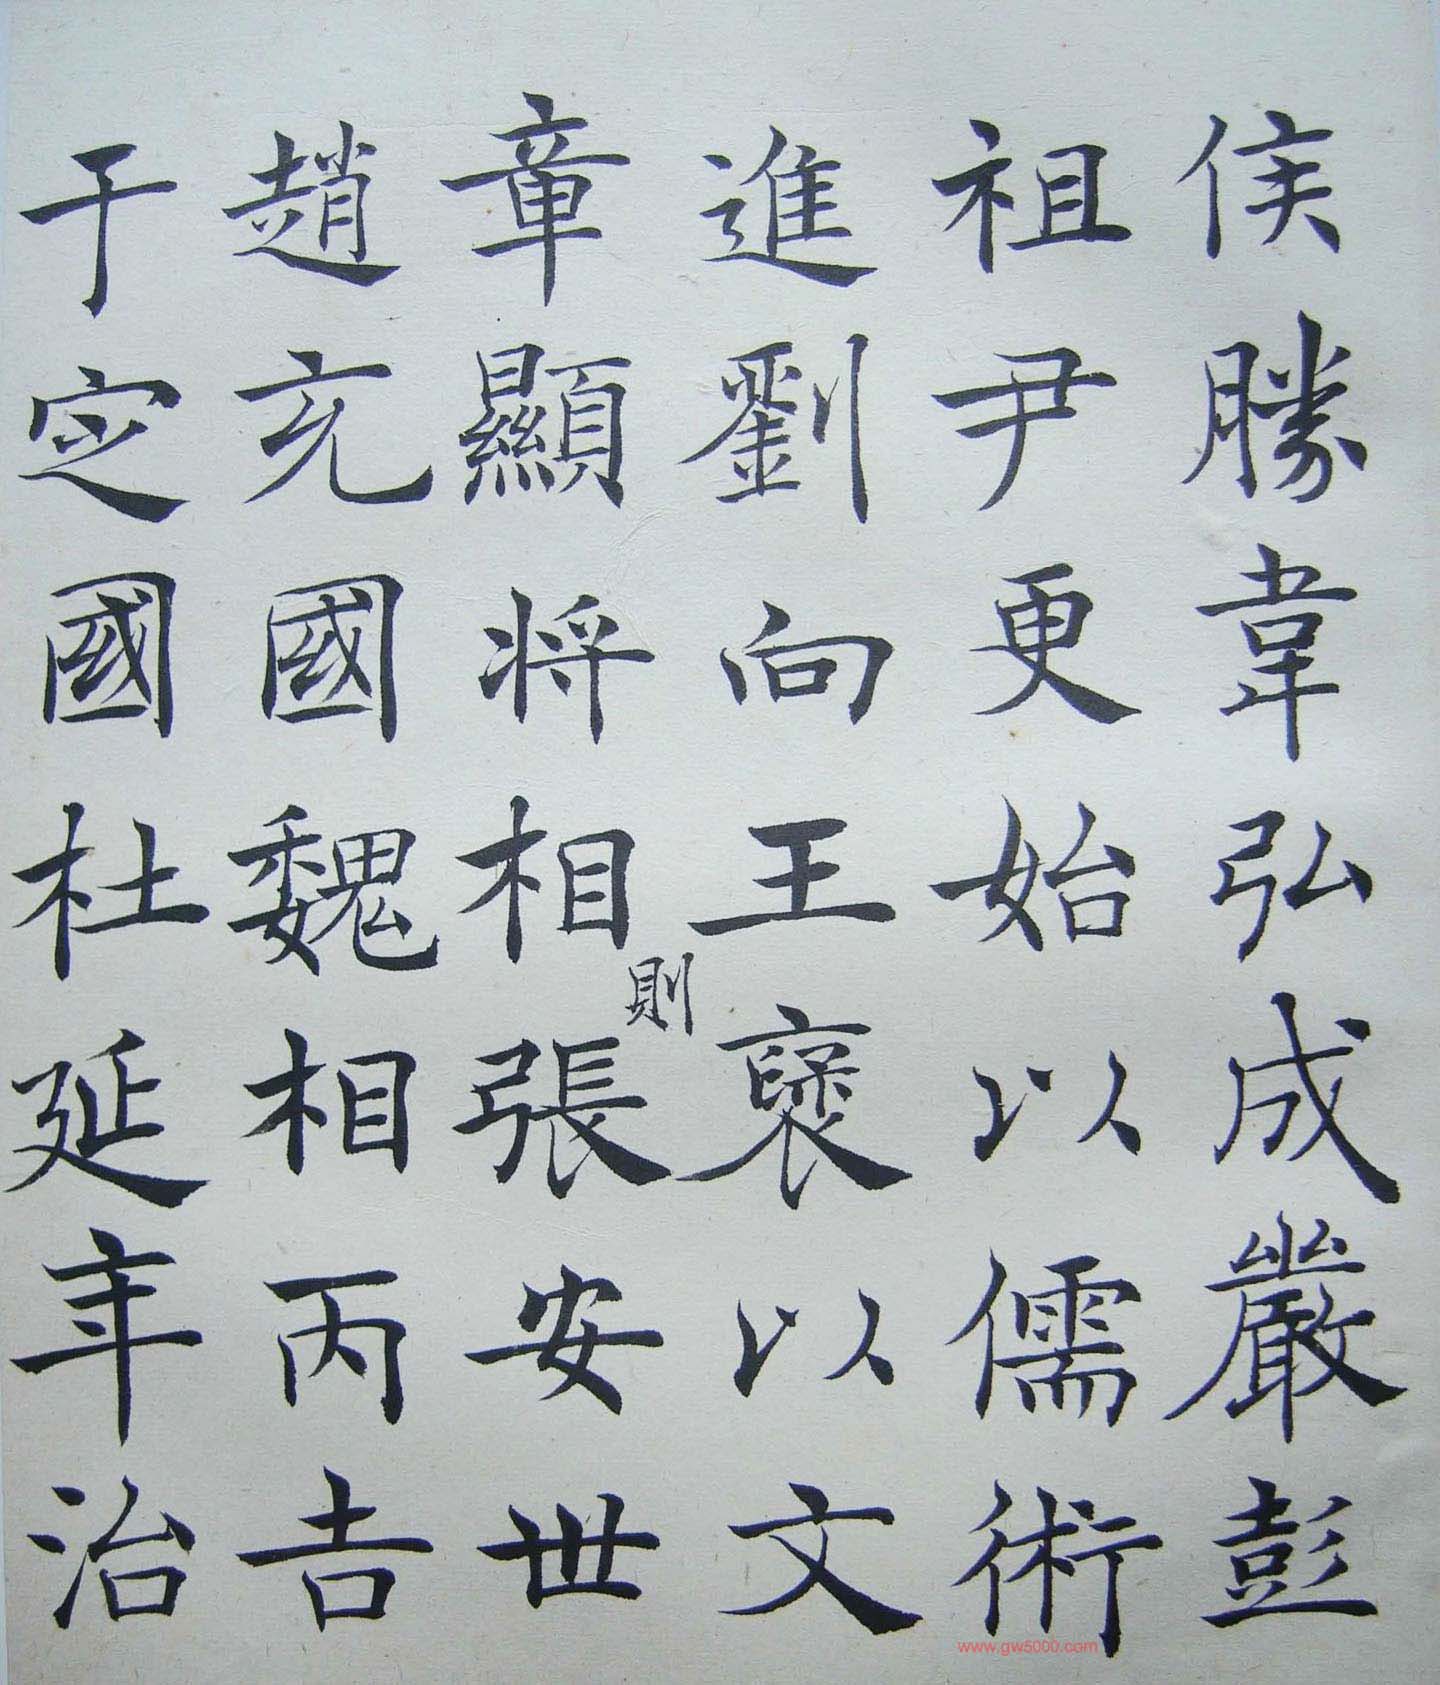 侯勝韋弘成嚴彭
祖尹更始以儒術
進劉向王褒以文
章顯將相則張安世
趙充國魏相丙吉
于定國杜延年治
www.gw5000.com